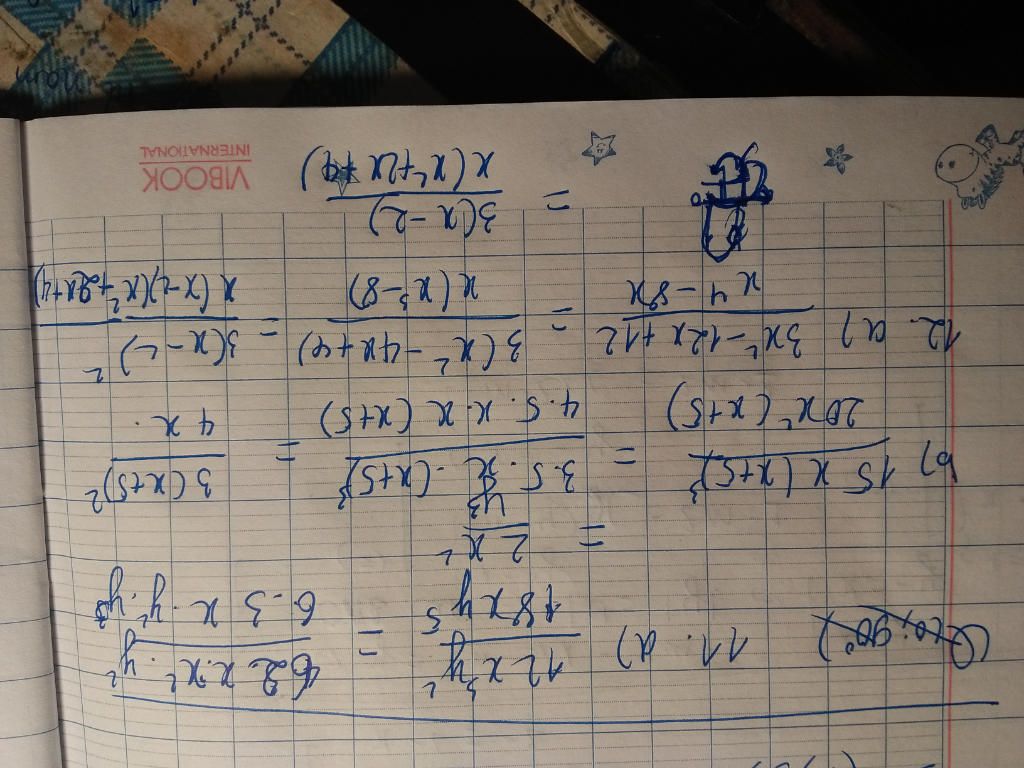 11. a) 12x³y² / 18xy⁵ = 6·2x·x²·y² / 6·3x·y²·y³
= 2x² / y³
b) 15x(x+5)³ / 20x²(x+5) = 3·5·x·(x+5)³ / 4·5·x·x(x+5) = 3(x+5)² / 4x.
12. a) 3x²-12x+12 / x⁴-8x = 3(x²-4x+4) / x(x³-8) = 3(x-2)² / x(x-2)(x²+2x+4)
= 3(x-2) / x(x²+2x+4)
VIBOOK
INTERNATIONAL